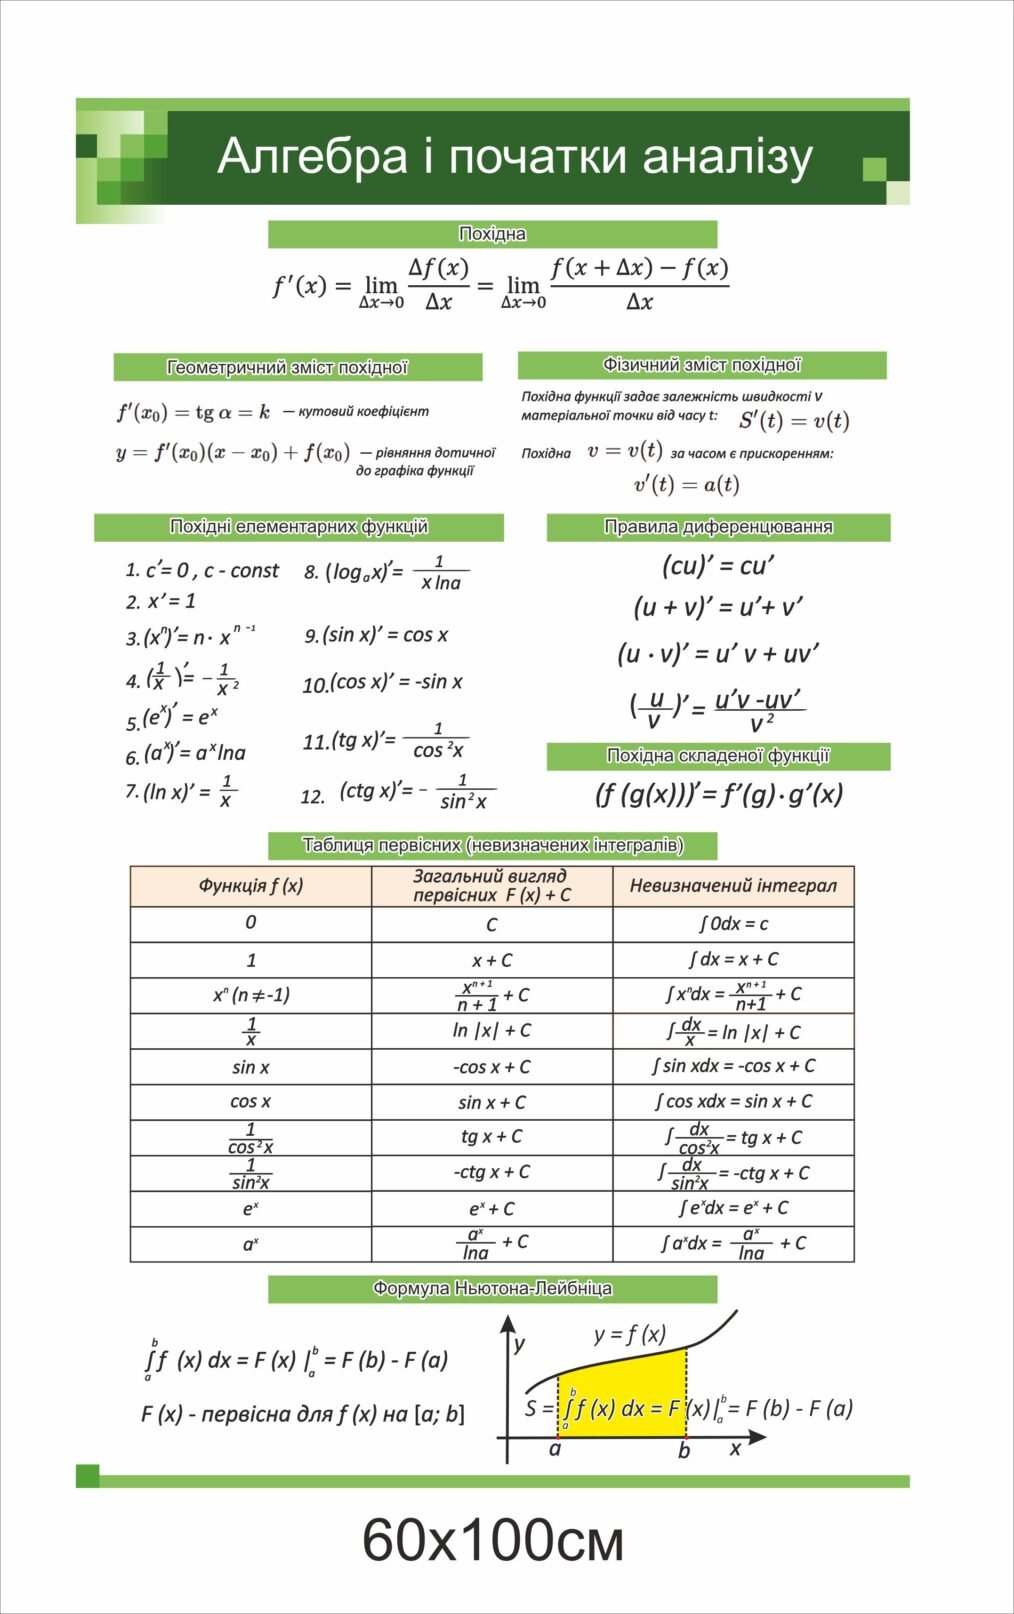 Алгебра і початки аналізу
Похідна
f′(x) = lim Δx→0 Δf(x)/Δx = lim Δx→0 (f(x + Δx) − f(x))/Δx
Геометричний зміст похідної
f′(x₀) = tg α = k — кутовий коефіцієнт
y = f′(x₀)(x − x₀) + f(x₀) — рівняння дотичної
до графіка функції
Фізичний зміст похідної
Похідна функції задає залежність швидкості v
матеріальної точки від часу t: S′(t) = v(t)
Похідна v = v(t) за часом є прискоренням:
v′(t) = a(t)
Похідні елементарних функцій
1. c′= 0 , c - const
2. x′ = 1
3. (xⁿ)′= n · xⁿ⁻¹
4. (1/x)′= − 1/x²
5. (eˣ)′ = eˣ
6. (aˣ)′= aˣ lna
7. (ln x)′ = 1/x
8. (logₐx)′= 1/(x lna)
9. (sin x)′ = cos x
10. (cos x)′ = -sin x
11. (tg x)′= 1/cos²x
12. (ctg x)′= − 1/sin²x
Правила диференцювання
(cu)′ = cu′
(u + v)′ = u′+ v′
(u · v)′ = u′ v + uv′
(u/v)′ = (u′v -uv′)/v²
Похідна складеної функції
(f (g(x)))′= f′(g) · g′(x)
Таблиця первісних (невизначених інтегралів)
Функція f (x) Загальний вигляд первісних F (x) + C Невизначений інтеграл
0 C ∫ 0dx = c
1 x + C ∫ dx = x + C
xⁿ (n ≠ -1) xⁿ⁺¹/(n + 1) + C ∫ xⁿdx = xⁿ⁺¹/(n+1) + C
1/x ln |x| + C ∫ dx/x = ln |x| + C
sin x -cos x + C ∫ sin xdx = -cos x + C
cos x sin x + C ∫ cos xdx = sin x + C
1/cos²x tg x + C ∫ dx/cos²x = tg x + C
1/sin²x -ctg x + C ∫ dx/sin²x = -ctg x + C
eˣ eˣ + C ∫ eˣdx = eˣ + C
aˣ aˣ/lna + C ∫ aˣdx = aˣ/lna + C
Формула Ньютона-Лейбніца
∫ₐᵇ f (x) dx = F (x) |ₐᵇ = F (b) - F (a)
F (x) - первісна для f (x) на [a; b]
y
y = f (x)
S = ∫ₐᵇ f (x) dx = F (x)|ₐᵇ = F (b) - F (a)
a b x
60х100см